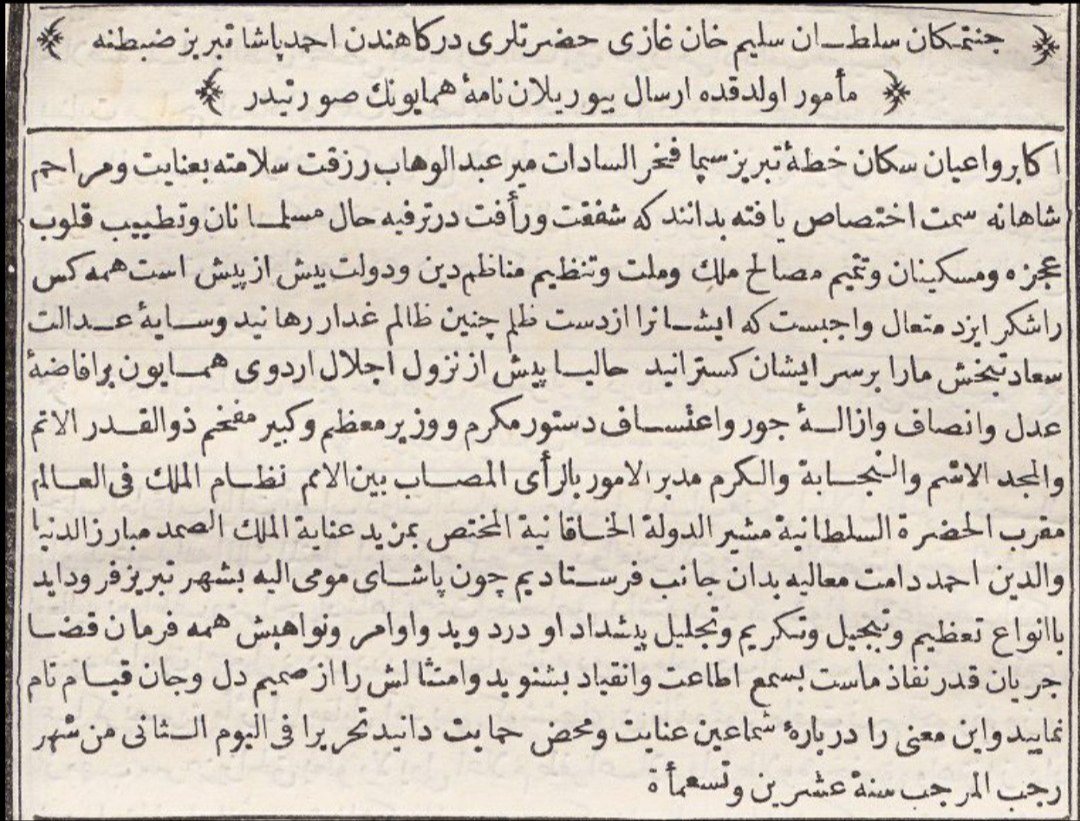 جنتمكان سلطان سليم خان غازى حضرتلرى دركاهندن احمد پاشا تبريز ضبطنه
مأمور اولدقده ارسال بيوريلان نامهٔ همايونك صورتيدر
اكابر واعيان سكان خطهٔ تبريز سيما فخر السادات مير عبد الوهاب رزقت سلامته بعنايت ومراحم
شاهانه سمت اختصاص يافته بدانند كه شفقت ورأفت در ترفيه حال مسلمانان وتطييب قلوب
عجزه ومسكينان وتتميم مصالح ملك وملت وتنظيم مناظم دين ودولت بيش از پيش است همه كس
را شكر ايزد متعال واجبست كه ايشانرا از دست ظلم چنين ظالم غدار رهانيد وسايهٔ عدالت
سعادتبخش مارا بر سر ايشان كسترانيد حاليا پيش از نزول اجلال اردوى همايون بر افاضهٔ
عدل وانصاف وازالهٔ جور واعتساف دستور مكرم ووزير معظم وكبير مفخم ذو القدر الاتم
والمجد الاشم والنجابة والكرم مدبر الامور بالرأى المصاب بين الامم نظام الملك فى العالم
مقرب الحضرة السلطانية مشير الدولة الخاقانية المختص بمزيد عناية الملك الصمد مبارز الدنيا
والدين احمد دامت معاليه بدان جانب فرستاديم چون پاشاى مومى اليه بشهر تبريز فرود ايد
باانواع تعظيم وتبجيل وتكريم وتجليل پيشداد او درد ويد واوامر ونواهيش همه فرمان قضا
جريان قدر نفاذ ماست بسمع اطاعت وانقياد بشنويد وامتثالش را از صميم دل وجان قيام تام
نماييد واين معنى را در بارهٔ شما عين عنايت ومحض حمايت دانيد تحريرا فى اليوم الثانى من شهر
رجب المرجب سنة عشرين وتسعمأة